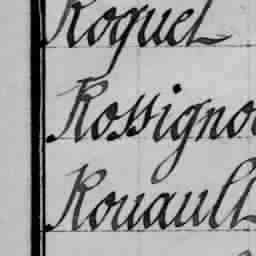 Roquet
Rossigno
Rouault